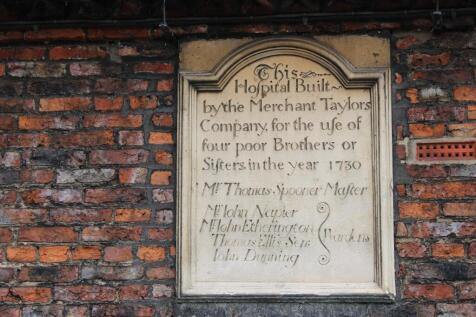 This
Hospital Built
by the Merchant Taylors
Company, for the use of
four poor Brothers or
Sisters in the year 1730
Mr. Thomas Spooner Master
Mr. John Napier
Mr. John Etherington
Thomas Ellis Senr.
John Dunning
Wardens